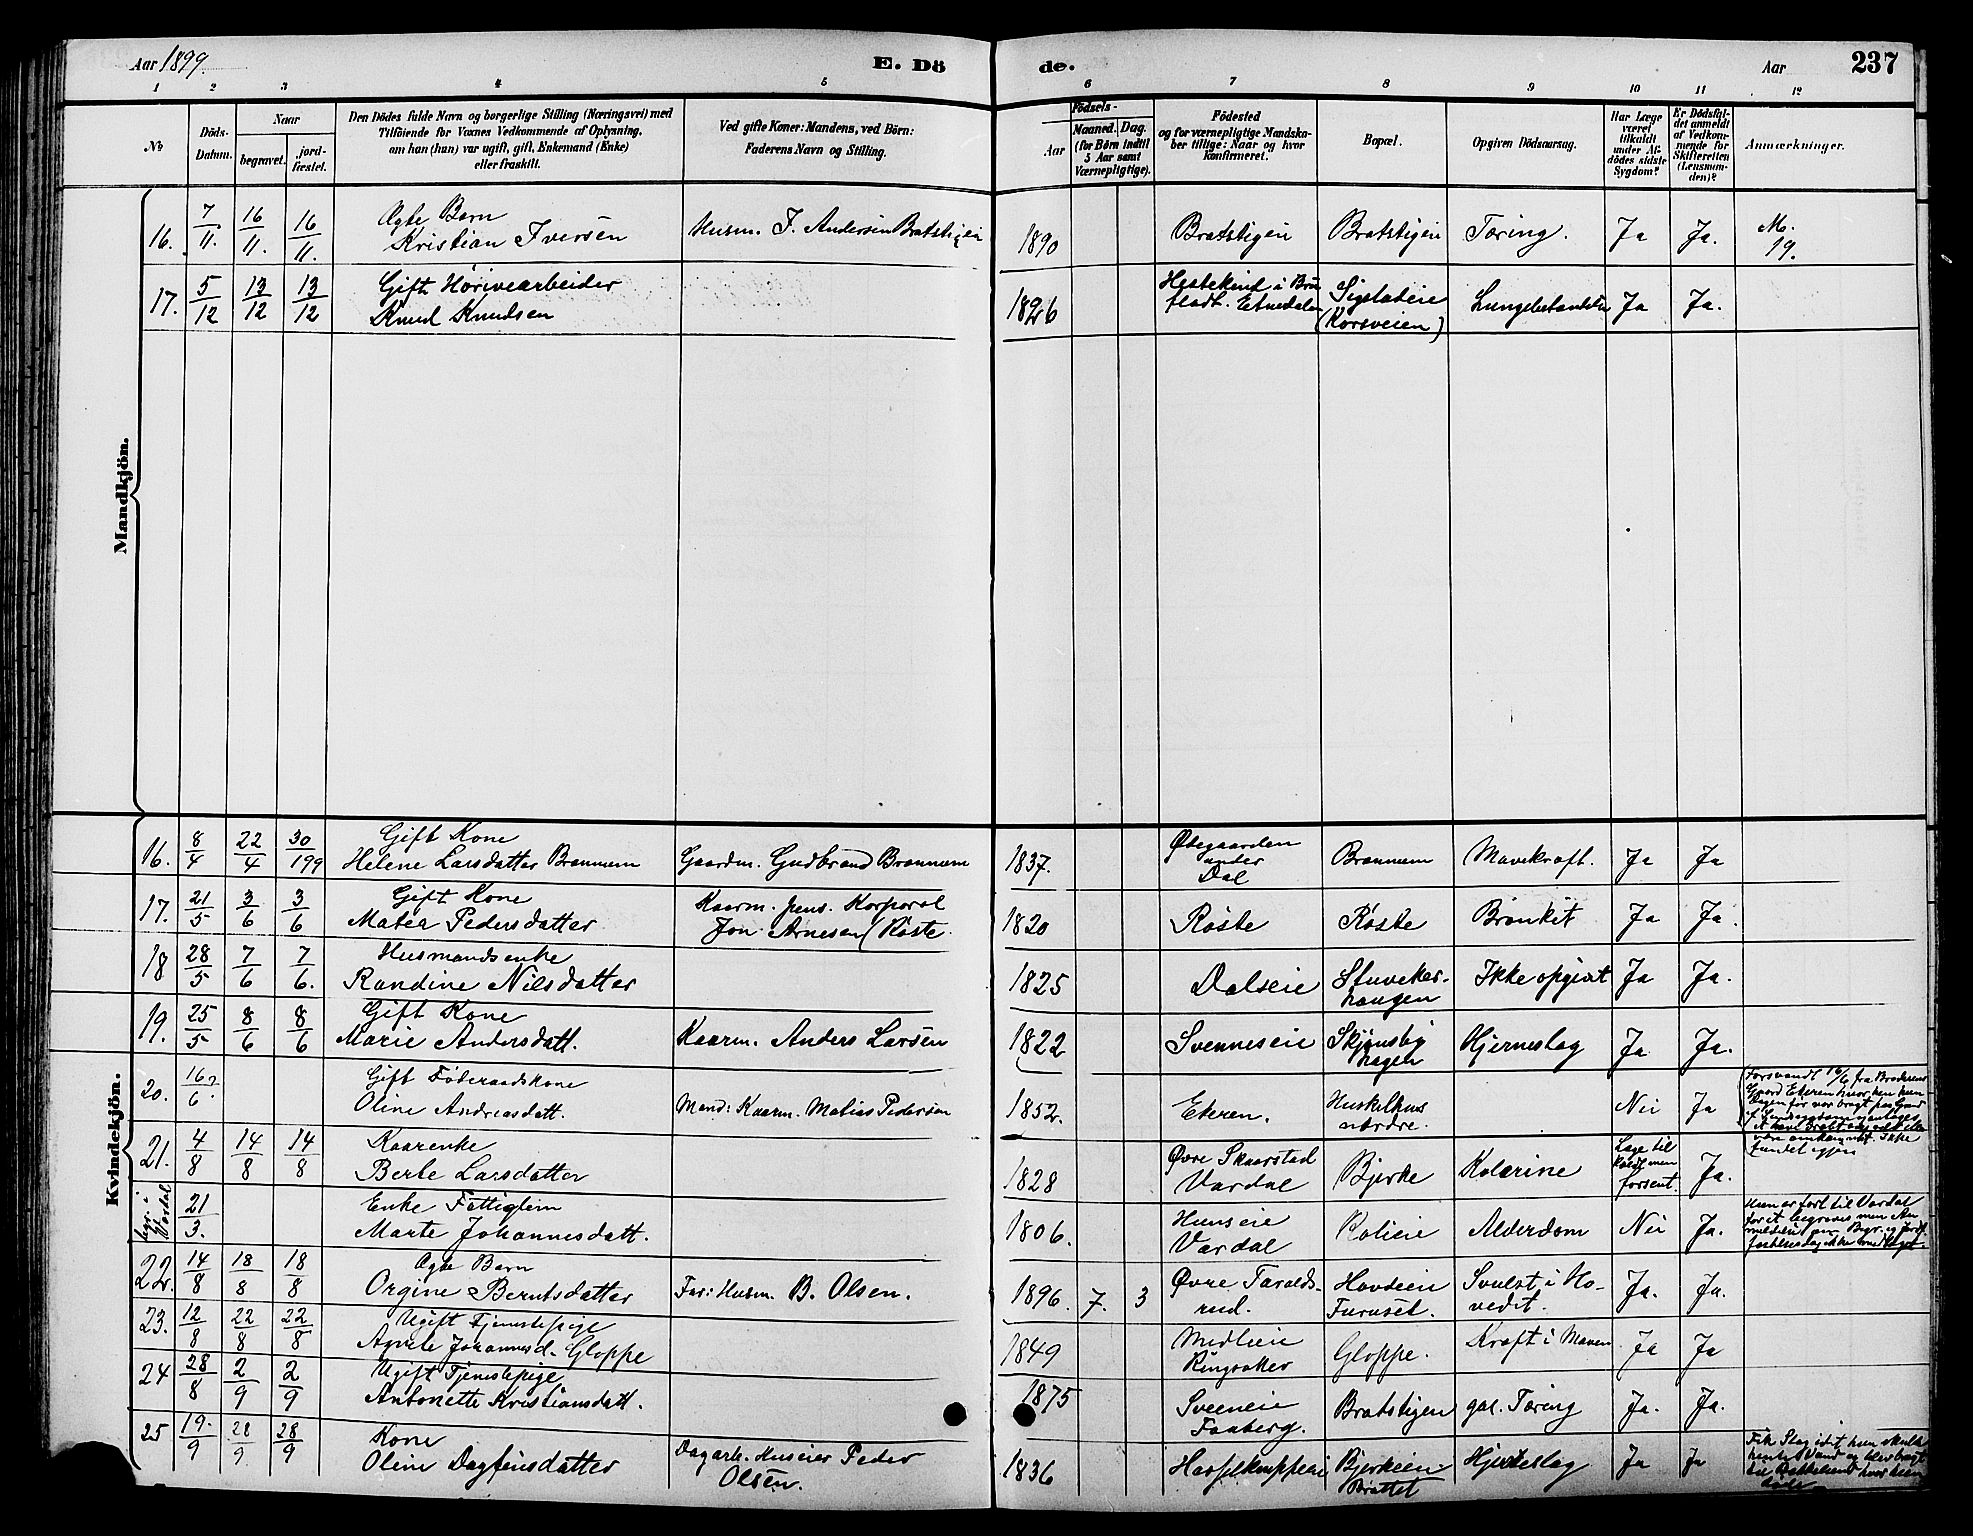 Aar 1899.
E. Dö
de.
Aar
237
1 2 3 4 5 6 7 8 9 10 11 12
No
Döds-
Datum.
Naar
begravet.
jord-
fæstet.
Den Dödes fulde Navn og borgerlige Stilling (Næringsvei) med
Tilföiende for Voxnes Vedkommende af Oplysning,
om han (hun) var ugift, gift, Enkemand (Enke)
eller fraskilt.
Ved gifte Koner: Mandens, ved Börn:
Faderens Navn og Stilling.
Födsels-
Aar
Maaned. Dag.
(for Börn indtil
5 Aar samt
Værnepligtige).
Födested
og for værnepligtige Mandska-
ber tillige: Naar og hvor
konfirmeret.
Bopæl.
Opgiven Dödsaarsag.
Har Læge
været
tilkaldt
under Af-
dödes sidste
Sygdom?
Er Dödsfal-
det anmeldt
af Vedkom-
mende for
Skifteretten
(Lensman-
den)?
Anmærkninger.
Mandkjön.
16. 7/11. 16/11. 16/11. Ægte Barn
Kristian Iversen Husm. I. Andersen Bratstigen 1890 Bratstigen Bratstigen Tæring. Ja Ja. M. 19.
17. 5/12 13/12 13/12 Gift
Knud Knudsen 1826 Hestekind i Bru-
fladt. Etnedalen Sigstadeie
(Korsveien) Lungebetændelse Ja Ja.
Kvindekjön.
16. 8/4 22/4 30/199 Gift Kone
Helene Larsdatter Brønnum Gaardm. Gudbrand Brønnum 1837. Ødegaarden
under
Dal Brønnum Mavekræft. Ja Ja
17. 21/5 3/6 3/6 Gift Kone
Matea Pedersdatter Kaarm. pens. Korporal
Jon Arnesen (Røste 1820 Røste Røste Bronkit Ja Ja.
18 28/5 7/6 7/6. Husmandsenke
Randine Nilsdatter 1825 Dalseie Stuveker-
haugen Ikke opgivet Ja Ja.
19. 25/5 8/6 8/6 Gift Kone
Marie Andersdatt. Kaarm. Anders Larsen 1822 Svenneseie Skjønsby
hagen Hjerneslag Ja Ja.
20. 16?/6. Gift Føderaadskone
Oline Andreasdatt. Mand: Kaarm. Matias Pedersen 1852. Ekeren. Huskelhus
nordre. Nei Ja Forsvandt 16/6 fra Broderens
Gaard Ekeren hvor hen hun
Dagen før var bragt
Ikke
fundet igjen
21. 4/8 14/8 14/8 Kaarenke
Berte Larsdatter 1828 Øvre Skaarstad
Vardal Bjerke Kolerine Læge til
kaldt men
forsent. Ja.
begr. i
Vardal 21/3. Enke Fattiglem
Marte Johannesdatt. 1806. Hunseie
Vardal Kolieie Alderdom Nei Ja. Hun er ført til Vardal
for at begraves men An
22. 14/8 18/8 18/8 Ægte Barn
Orgine Berntsdatter Far: Husm. B. Olsen. 1896. 7. 3 Øvre Taralds-
rud. Hovdeien
Furuset. Svulst i Ho-
vedet. Ja. Ja.
23. 12/8 22/8 22/8 Ugift Tjenestepige
Agnete Johannesd. Gloppe 1849 Medlieie
Ringsaker Gloppe. Kræft i Maven Ja Ja
24 28/8 2/9 2/9 Ugift Tjenestepige
Antonette Kristiansdatt. 1875 Sveeneie
Faaberg. Bratstigen gal. Tæring Ja. Ja.
25 19./9 28/9. 28/9 Kone
Oline Dagfinsdatter Dagarb. Huseier Peder
Olsen. 1836 Bjerkeien
Brattet Hjerteslag Ja Ja Fik Slag idet hun skulde
hente Vand og blev bragt
hvor hun
døde